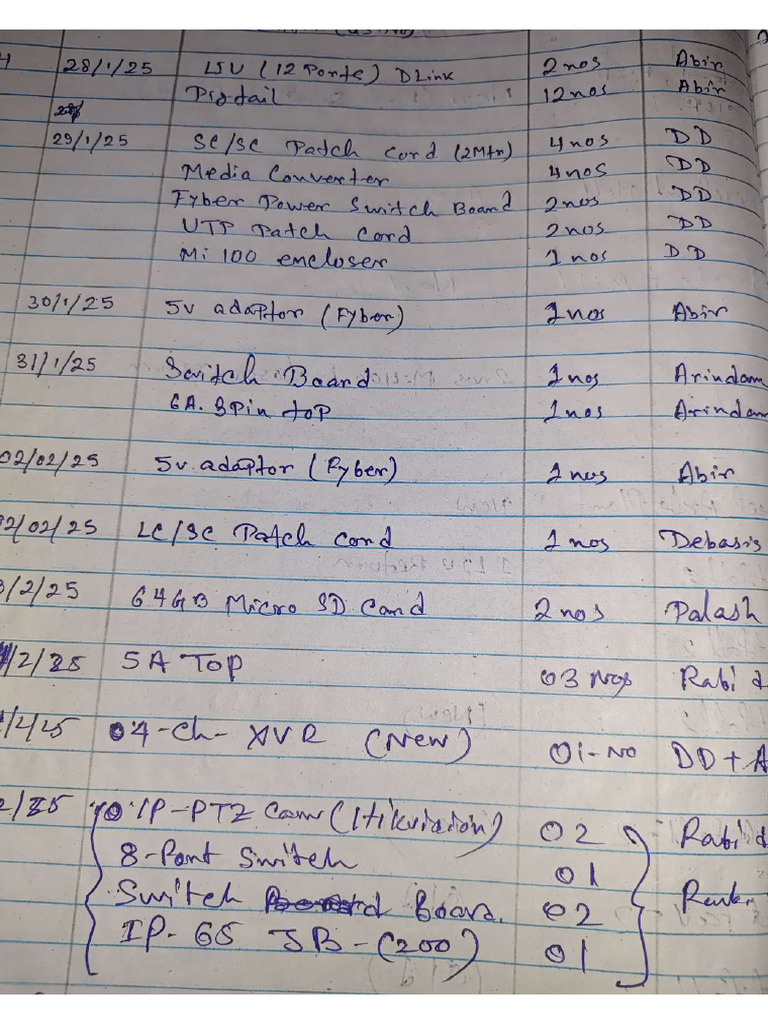 28/1/25 LIU (12 Ports) DLink 2 nos Abir
Pigtail 12 nos Abir
29/1/25 SC/SC Patch Cord (2Mtr) 4 nos DD
Media Converter 4 nos DD
Fyber Power Switch Board 2 nos DD
UTP Patch Cord 2 nos DD
Mi 100 encloser 1 nos DD
30/1/25 5v adaptor (Fyber) 1 nos Abir
31/1/25 Switch Board 1 nos Arindam
6A. 3Pin top 1 nos Arindam
02/02/25 5v. adaptor (Fyber) 1 nos Abir
2/02/25 LC/SC Patch cord 1 nos Debasis
3/2/25 64GB Micro SD Card 2 nos Palash
/2/25 5A Top 03 Nos Rabi
/2/25 04-Ch- XVR (New) 01-No DD + A
2/25 IP-PTZ Cam (Hikvision) 02 Rabi
8-Port Switch 01
Switch Board. 02
IP-65 JB-(200) 01